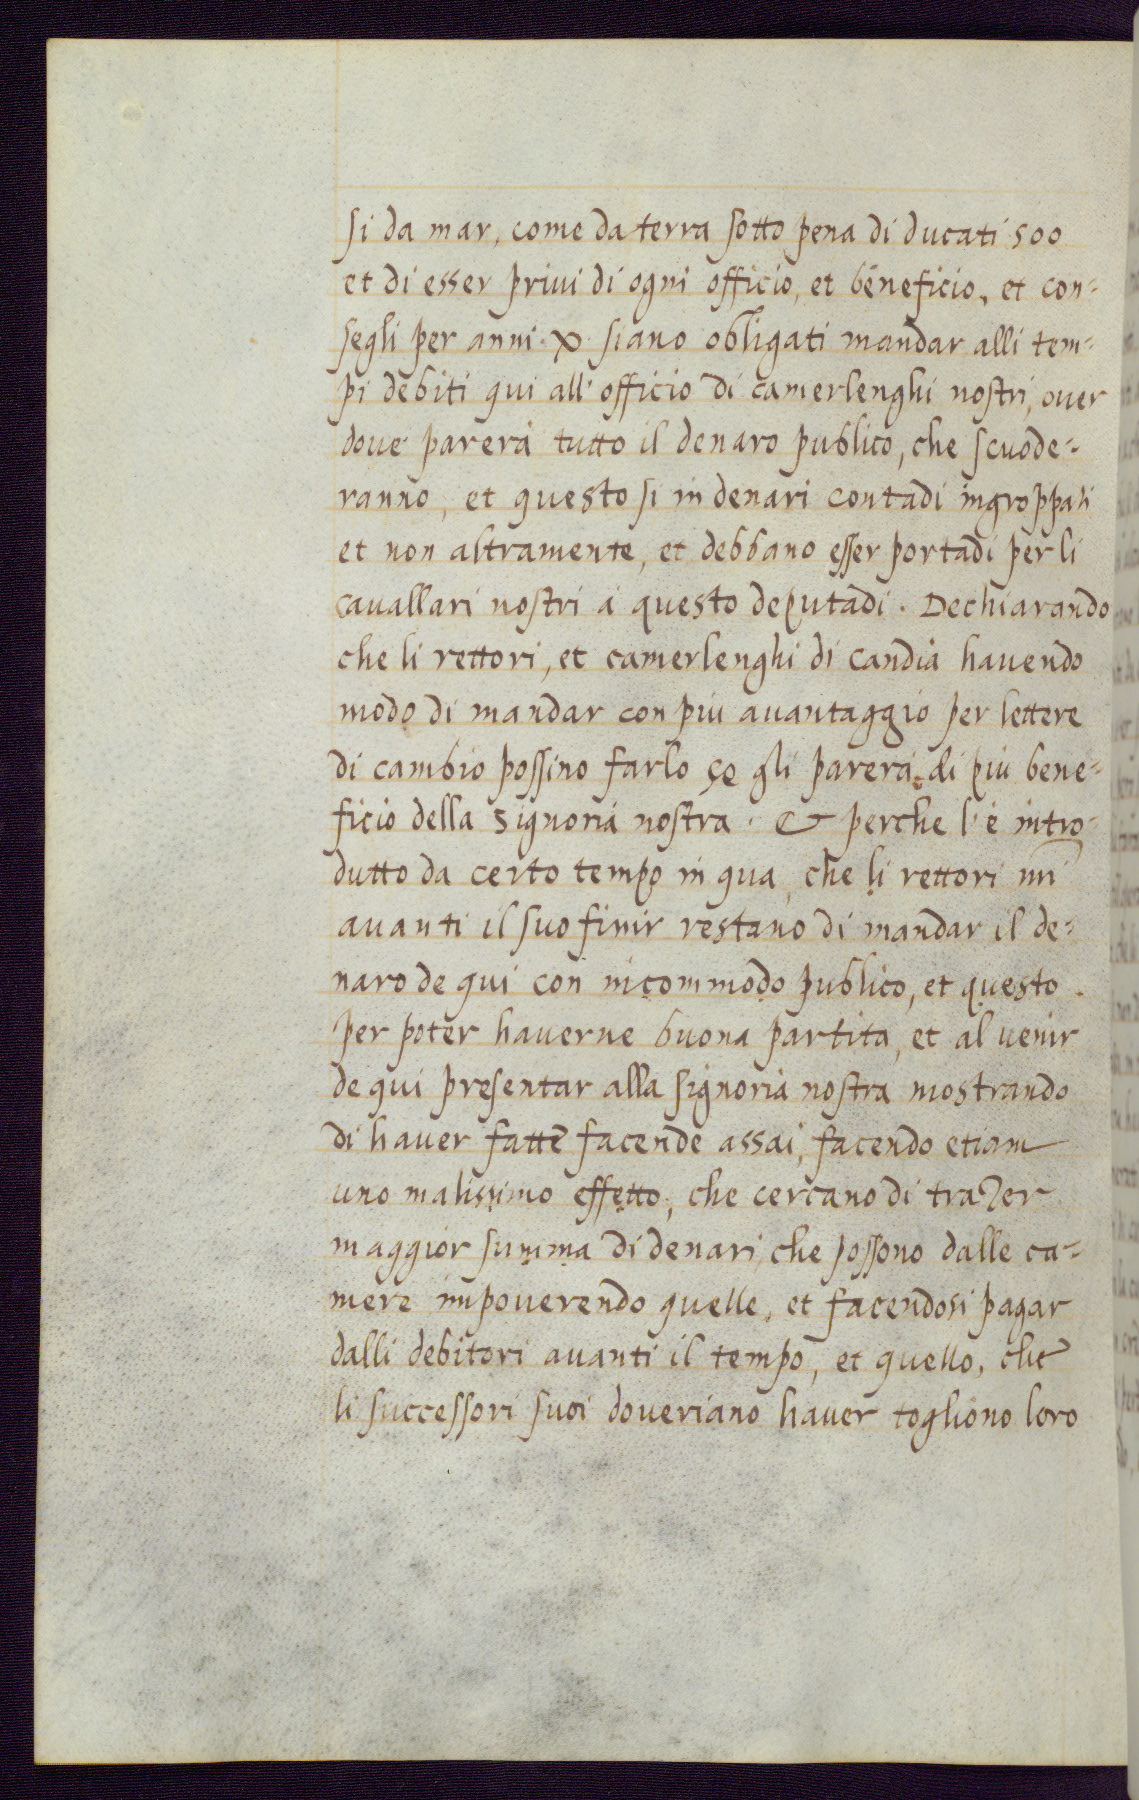 si da mar, come da terra sotto pena di ducati 500
et di esser privi di ogni officio, et beneficio, et con-
segli per anni · X · siano obligati mandar alli tem-
pi debiti qui all' officio di camerlenghi nostri, over
dove parerà tutto il denaro publico, che scuode-
ranno, et questo si in denari contadi ingroppati
et non altramente, et debbano esser portadi per li
cavallari nostri à questo deputadi. Dechiarando
che li rettori, et camerlenghi di Candia havendo
modo di mandar con più avantaggio per lettere
di cambio possino farlo se gli parerà di più bene-
ficio della Signoria nostra. Et perche l'è intro-
dutto da certo tempo in qua, che li rettori nri
avanti il suo finir restano di mandar il de-
naro de qui con incommodo publico, et questo
per poter haverne buona partita, et al venir
de qui presentar alla signoria nostra mostrando
di haver fatte facende assai, facendo etiam
uno malissimo effetto, che cercano di trazer
maggior summa di denari, che possono dalle ca-
mere impoverendo quelle, et facendosi pagar
dalli debitori avanti il tempo, et quello, che
li successori suoi doveriano haver togliono loro